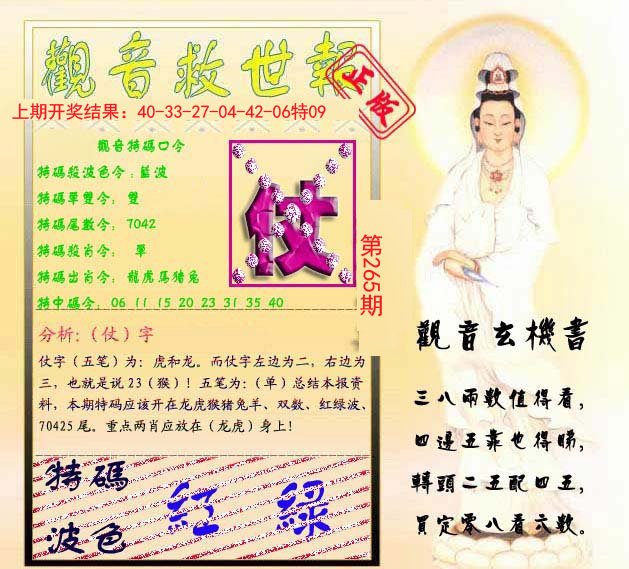 觀音救世報
正版
上期开奖结果：40-33-27-04-42-06特09
觀音特碼口令
特碼殺波色令：藍波
特碼單雙令：雙
特碼尾數令：7042
特碼殺肖令：單
特碼出肖令：龍虎馬猪兔
特中碼令：06 11 15 20 23 31 35 40
仗
第265期
分析：（仗）字
仗字（五笔）为：虎和龙。而仗字左边为二，右边为
三，也就是说 23（猴）！五笔为：（单）总结本报资
料，本期特码应该开在龙虎猴猪兔羊、双数、红绿波、
70425 尾。重点两肖应放在（龙虎）身上！
特碼
波色
紅 綠
觀音玄機書
三八兩數值得看，
四邊五靠也得睇，
轉頭二五配四五，
買定零八看六數。